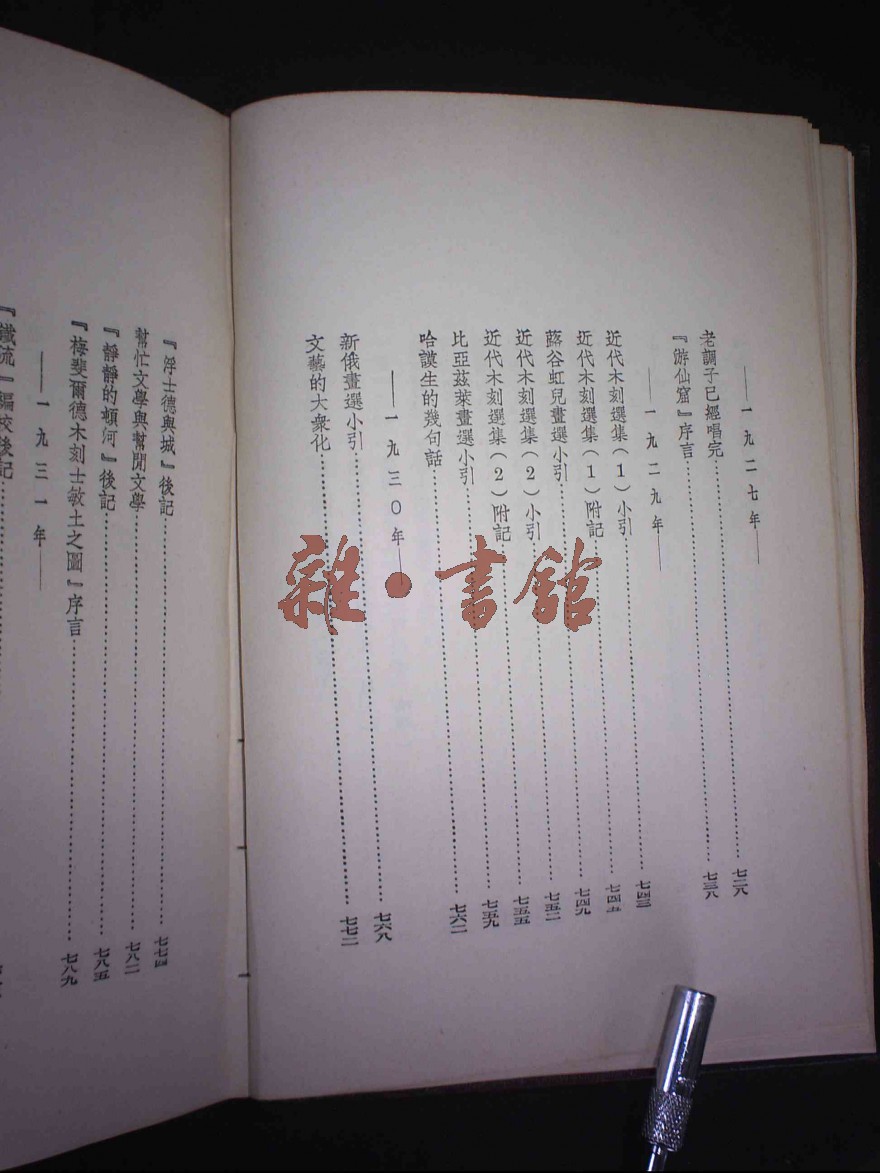 ——一九二七年——
老調子已經唱完……七二八
『游仙窟』序言……七三八
——一九二九年——
近代木刻選集(1)小引……七四三
近代木刻選集(1)附記……七四五
蕗谷虹兒畫選小引……七四九
近代木刻選集(2)小引……七五二
近代木刻選集(2)附記……七五五
比亞茲萊畫選小引……七五九
哈謨生的幾句話……七六二
——一九三〇年——
新俄畫選小引……七六八
文藝的大衆化……七七二
『浮士德與城』後記……七七四
幫忙文學與幫閒文學……七八二
『靜靜的頓河』後記……七八五
『梅斐爾德木刻士敏土之圖』序言……七八九
——一九三一年——
『鐵流』編校後記……
雜·書館